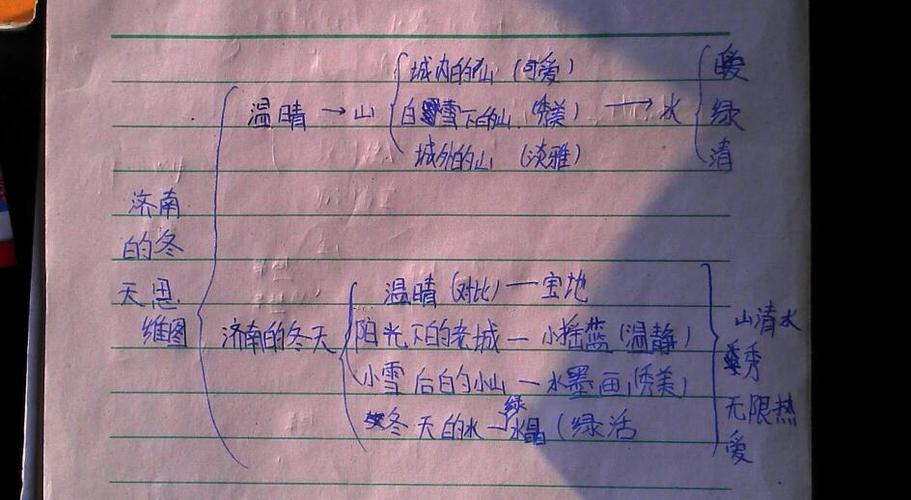 城内的山（可爱）
温晴→山 白雪下的山（秀美）→水
城外的山（淡雅）
暖
绿
清
济南
的冬
天思
维图
济南的冬天
温晴（对比）—宝地
阳光下的老城—小摇蓝（温静）
小雪后的小山—水墨画（秀美）
冬天的水—绿水晶（绿活
山清水
秀
无限热
爱